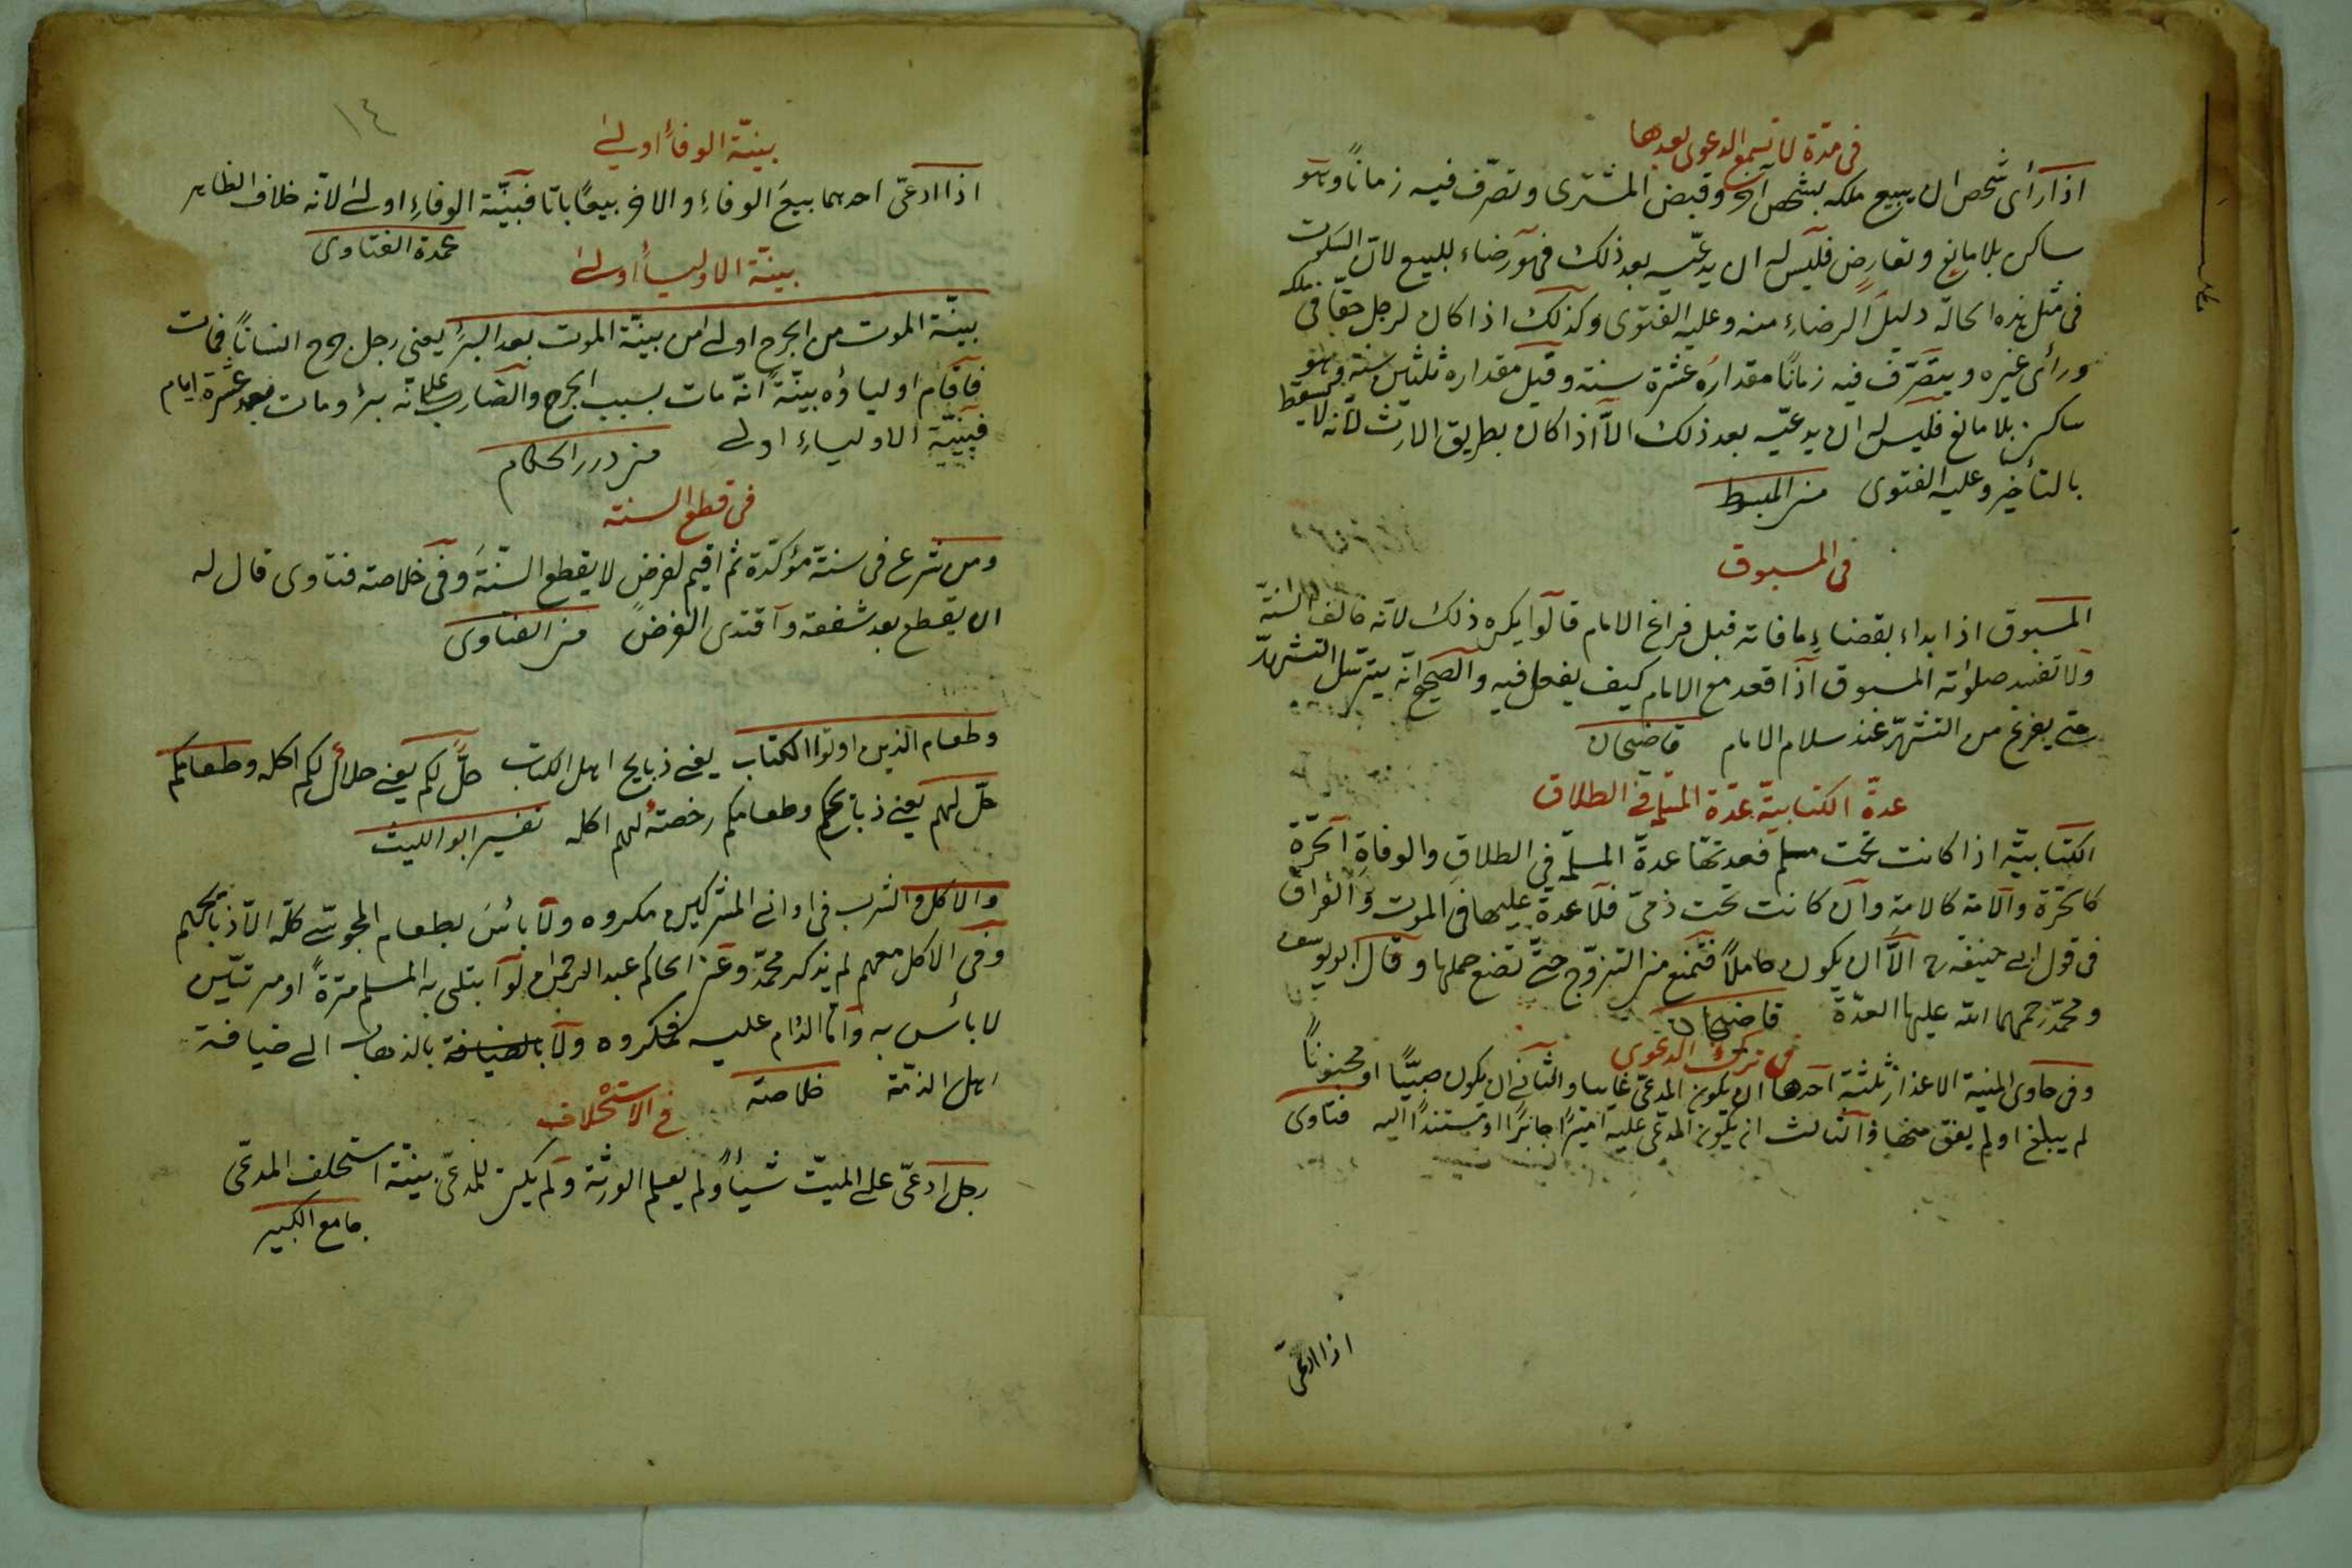 في مدّة لا تسمع الدعوى بعدها
اذا رأى شخص ان يبيع ملكه بشخص آخر وقبض المشترى وتصرّف فيه زماناً وهو
ساكن بلا مانع وتعارض فليس له ان يدعيه بعد ذلك فهو رضاء للبيع لانّ السكوت
فى مثل هذه الحالة دليل الرضاءِ منه وعليه الفتوى وكذلك اذا كان لرجل حقّا فى ملكه
ورأى غيره ويتصرّف فيه زمانًا مقداره عشرة سنة وقيل مقداره ثلثين سنة وهو
ساكن بلا مانع فليس له ان يدعيّه بعد ذلك الاّ اذا كان بطريق الارث لانّه لا يسقط
بالتأخير وعليه الفتوى من المبسوط
فى المسبوق
المسبوق اذا بداء بقضاءِ ما فاته قبل فراغ الامام قالوا يكره ذلك لانّه خالف السنّة
ولا تفسد صلوته المسبوق اذا قعد مع الامام كيف يفعل فيه والصحيح انّه يترسّل التشهدّ
حتى يفرغ من التشهّد عند سلام الامام قاضيخان
عدة الكتابيّة عدّة المسلمة في الطلاق
الكتابيّة اذا كانت تحت مسلم فعدتها عدة المسلمة في الطلاقِ والوفاةِ الحرّة
كالحرّة والامة كالامة وان كانت تحت ذمىّ فلا عدة عليها فى الموت والفراق
فى قول ابى حنيفة رح الاّ ان يكون حاملاً فتمنع من التزوّج حتّى تضع حملها وقال ابو يوسف
ومحمّد رحمهما الله عليها العدّة قاضيخان
فى ترك الدعوى
وفى حاوى المنية الاعذار ثلثة احدها ان يكون المدعىّ غايبا والثانى ان يكون صبيًّا او مجنونًا
لم يبلغ او لم يفق منها والثالث ان يكون المدعى عليه اميرًا جائرًا او مستندًا اليه فتاوى
اذا ادعىّ
١٤
بينّة الوفأ اولى
اذا ادعىّ احدهما بيعَ الوفاءِ والاخر بيعًا باتا فبينّة الوفاءِ اولى لانّه خلاف الظاهر
عمدة الفتاوى
بينّة الاوليأ اولى
بينّة الموت من الجرح اولى من بينّة الموت بعد البرأ يعنى رجل جرح انسانًا فمات
فاقام اولياؤه بينّةً انّه مات بسبب الجرح والضارب على انّه برؤ ومات بعد عشرة ايام
فبينّة الاولياءِ اولى من درر الحكام
فى قطع السنة
ومن شرع فى سنة مؤكدّة ثم اقيم لفرض لا يقطع السنّة وفى خلاصة فتاوى قال له
ان يقطع بعد شفعة واقتدى الفرض من الفتاوى
وطعام الذين اوتوا الكتاب يعنى ذبايح اهل الكتاب حلّ لكم يعنى حلال لكم اكله وطعامكم
حلّ لهم يعنى ذبائحكم وطعامكم رخصةٌ لهم اكله تفسير ابو الليث
والاكل والشرب فى اوانى المشركين مكروه ولا بأسَ بطعام المجوسّى كلّه الاّ ذبائحهم
وفى الاكل معهم لم يذكر محمّد وعن الحاكم عبد الرحمن لو ابتلى به المسلم مرّةً او مرتيّن
لا بأس به وامّا الدوام عليه فمكروه ولا بالضيافة بالذهاب الى ضيافة
اهل الذمّة خلاصة
فى الاستحلاف
رجل ادعىّ على الميّت شيأً ولم يعلم الورثة ولم يكن للمدعىّ بينّة استحلف المدعىّ
جامع الكبير